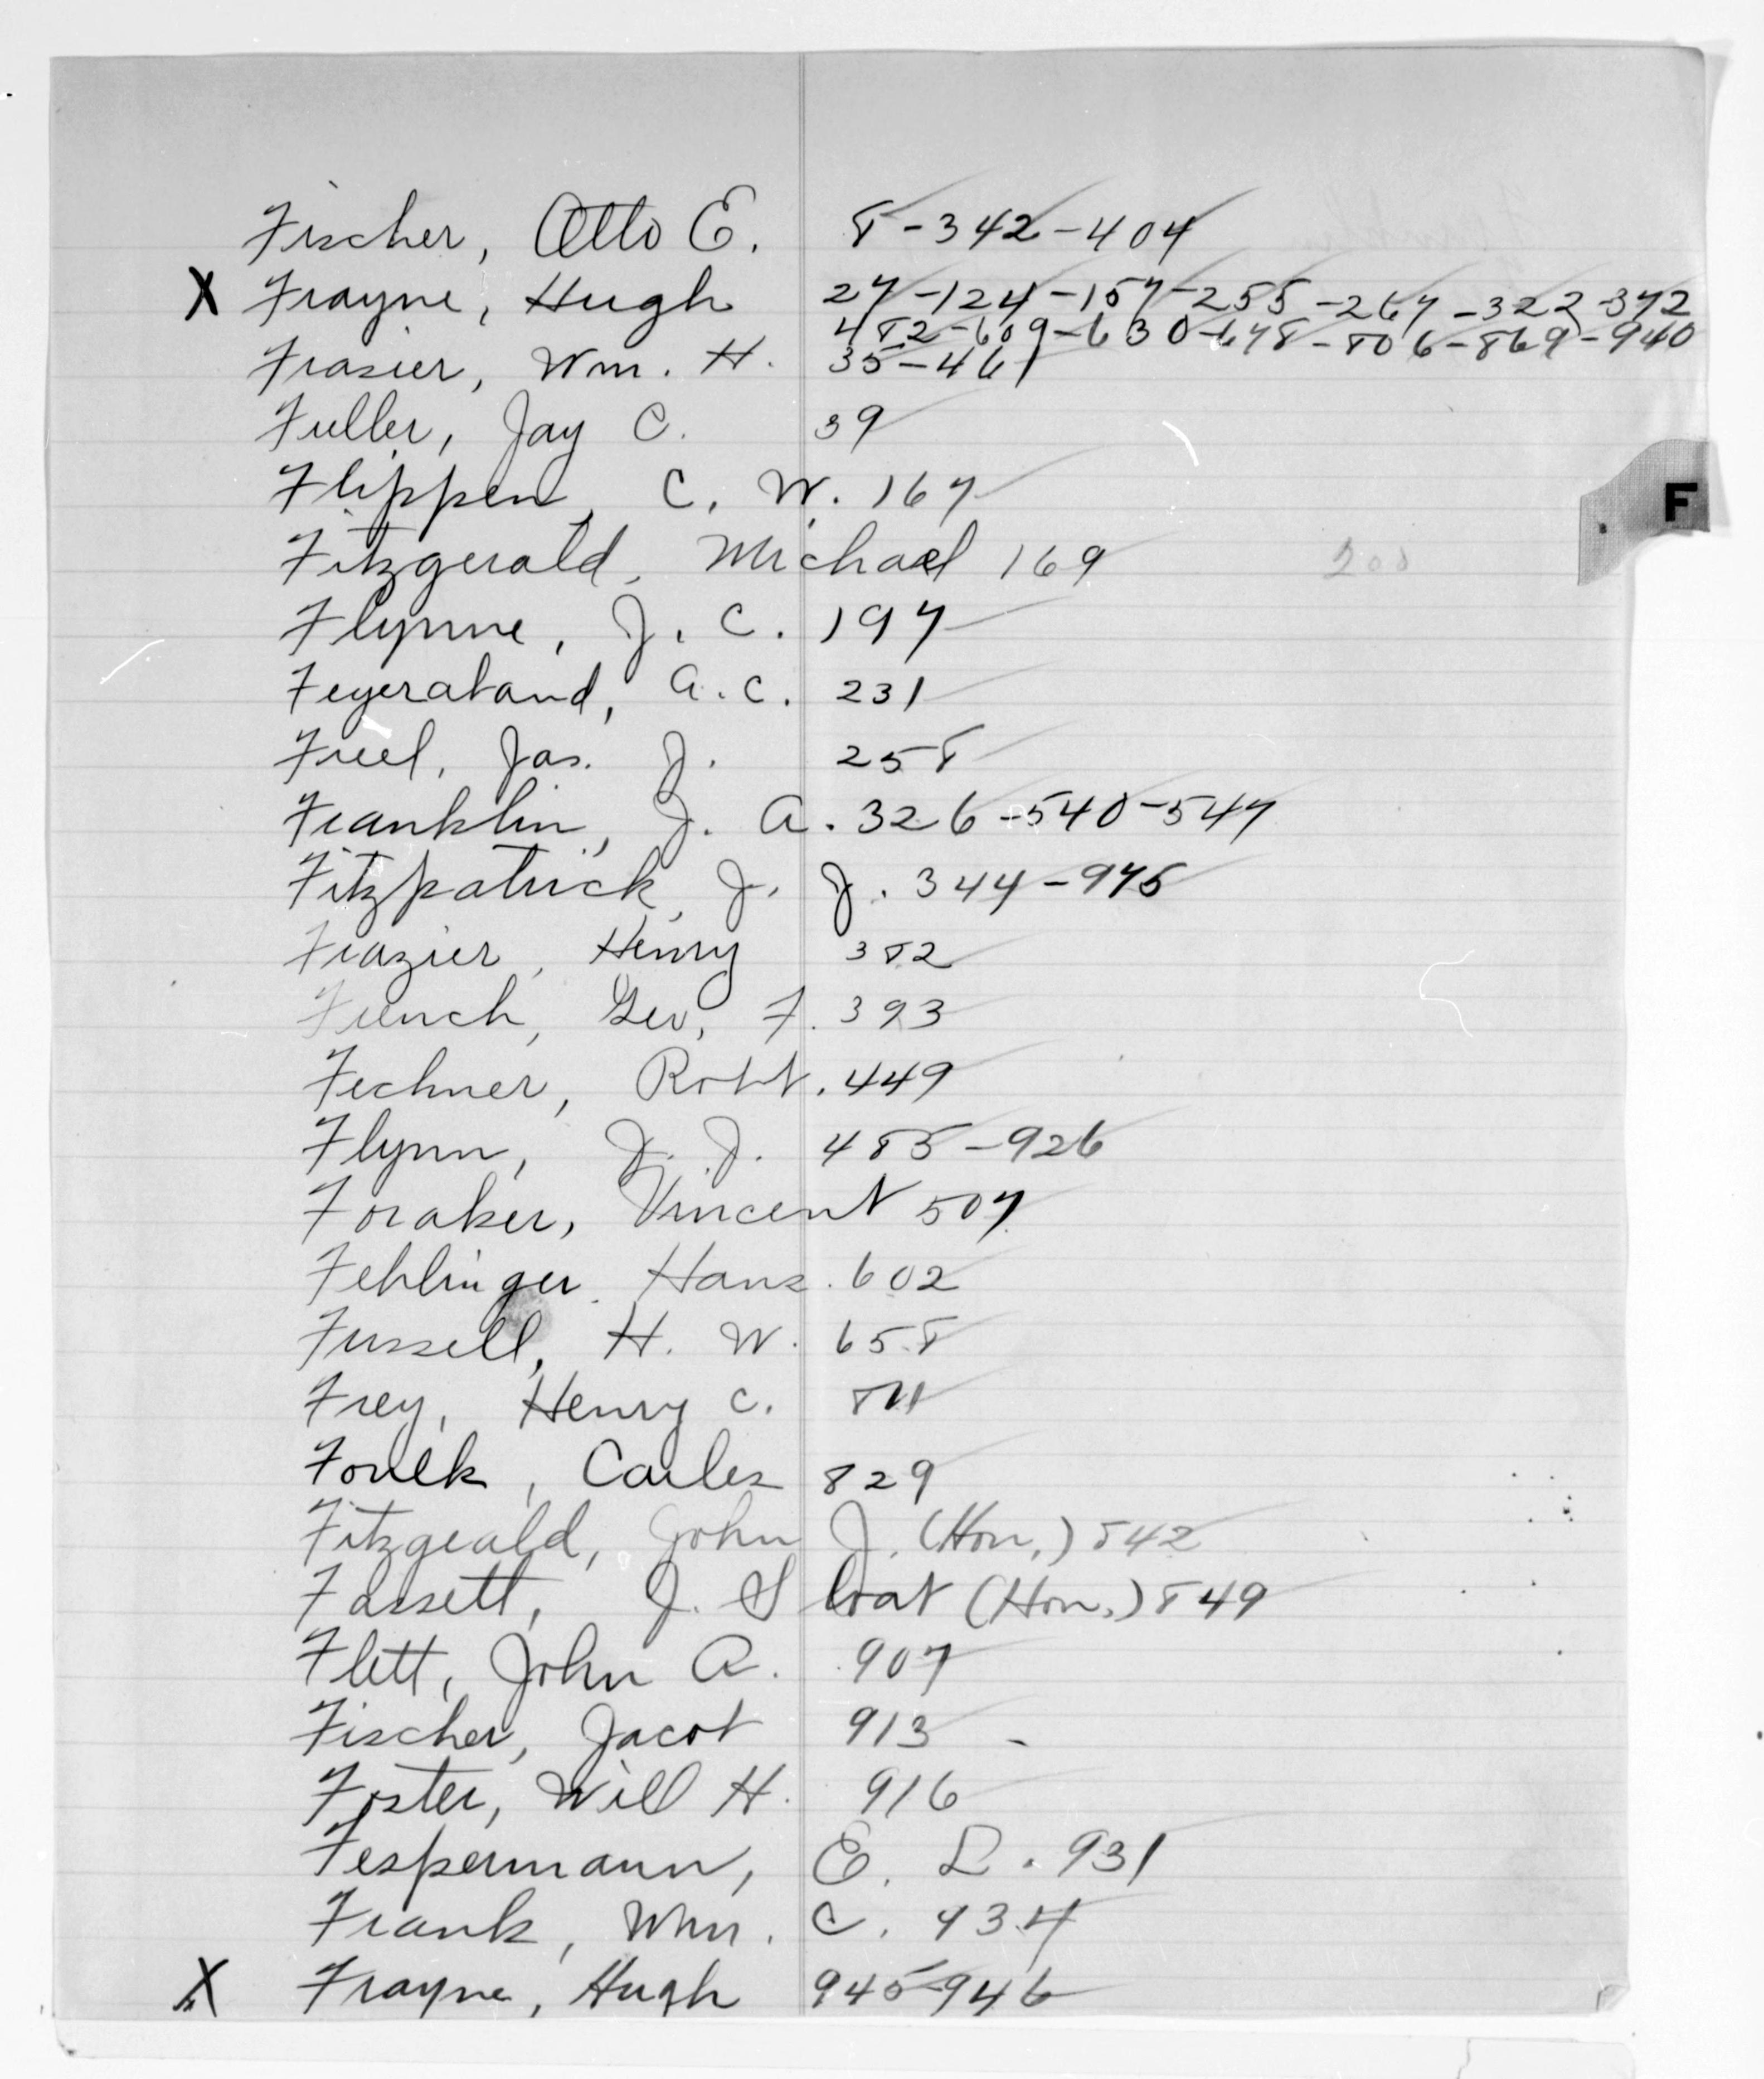 Fischer, Otto E. 8-342-404
X Frayne, Hugh 27-124-157-255-267-322-372
482-609-630-678-806-869-940
Frasier, Wm. H. 35-461
Fuller, Jay C. 39
Flippen, C. W. 167
F
Fitzgerald, Michael 169 208
Flynne, J. C. 197
Feyeraband, A. C. 231
Freel, Jas. J. 258
Franklin, J. A. 326-540-547
Fitzpatrick, J. J. 344-975
Frazier, Henry 382
French, Geo. F. 393
Fechner, Robt. 449
Flynn, J. J. 485-926
Foraker, Vincent 507
Fehlinger, Hans. 602
Fussell, H. W. 658
Frey, Henry C. 811
Foulk, Carles 829
Fitzgeald, John J. (Hon.) 842
Fassett, J. Sloat (Hon.) 849
Flett, John A. 907
Fischer, Jacob 913 -
Foster, Will H. 916
Fespermann, E. L. 931
Frank, Wm. C. 934
X Frayne, Hugh 945-946